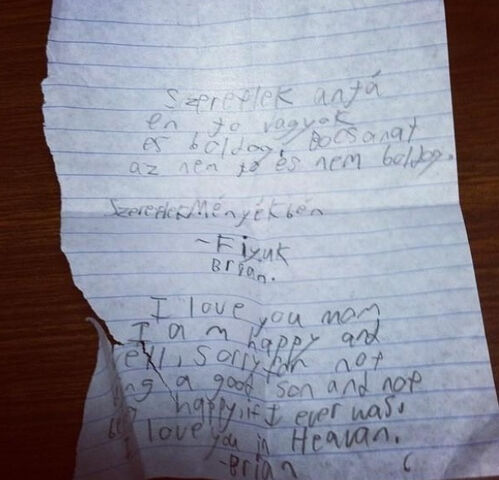 Szeretlek anyá
en jo vagyok
es boldog, Bocsanat
az nem jo es nem boldog.
Szeretlek Ményékbén
- Fiyuk
Brian.
I love you mam
I am happy and
ell, sorry for not
ng a good son and not
happy, if I ever was.
I love you in Heavan.
- Brian